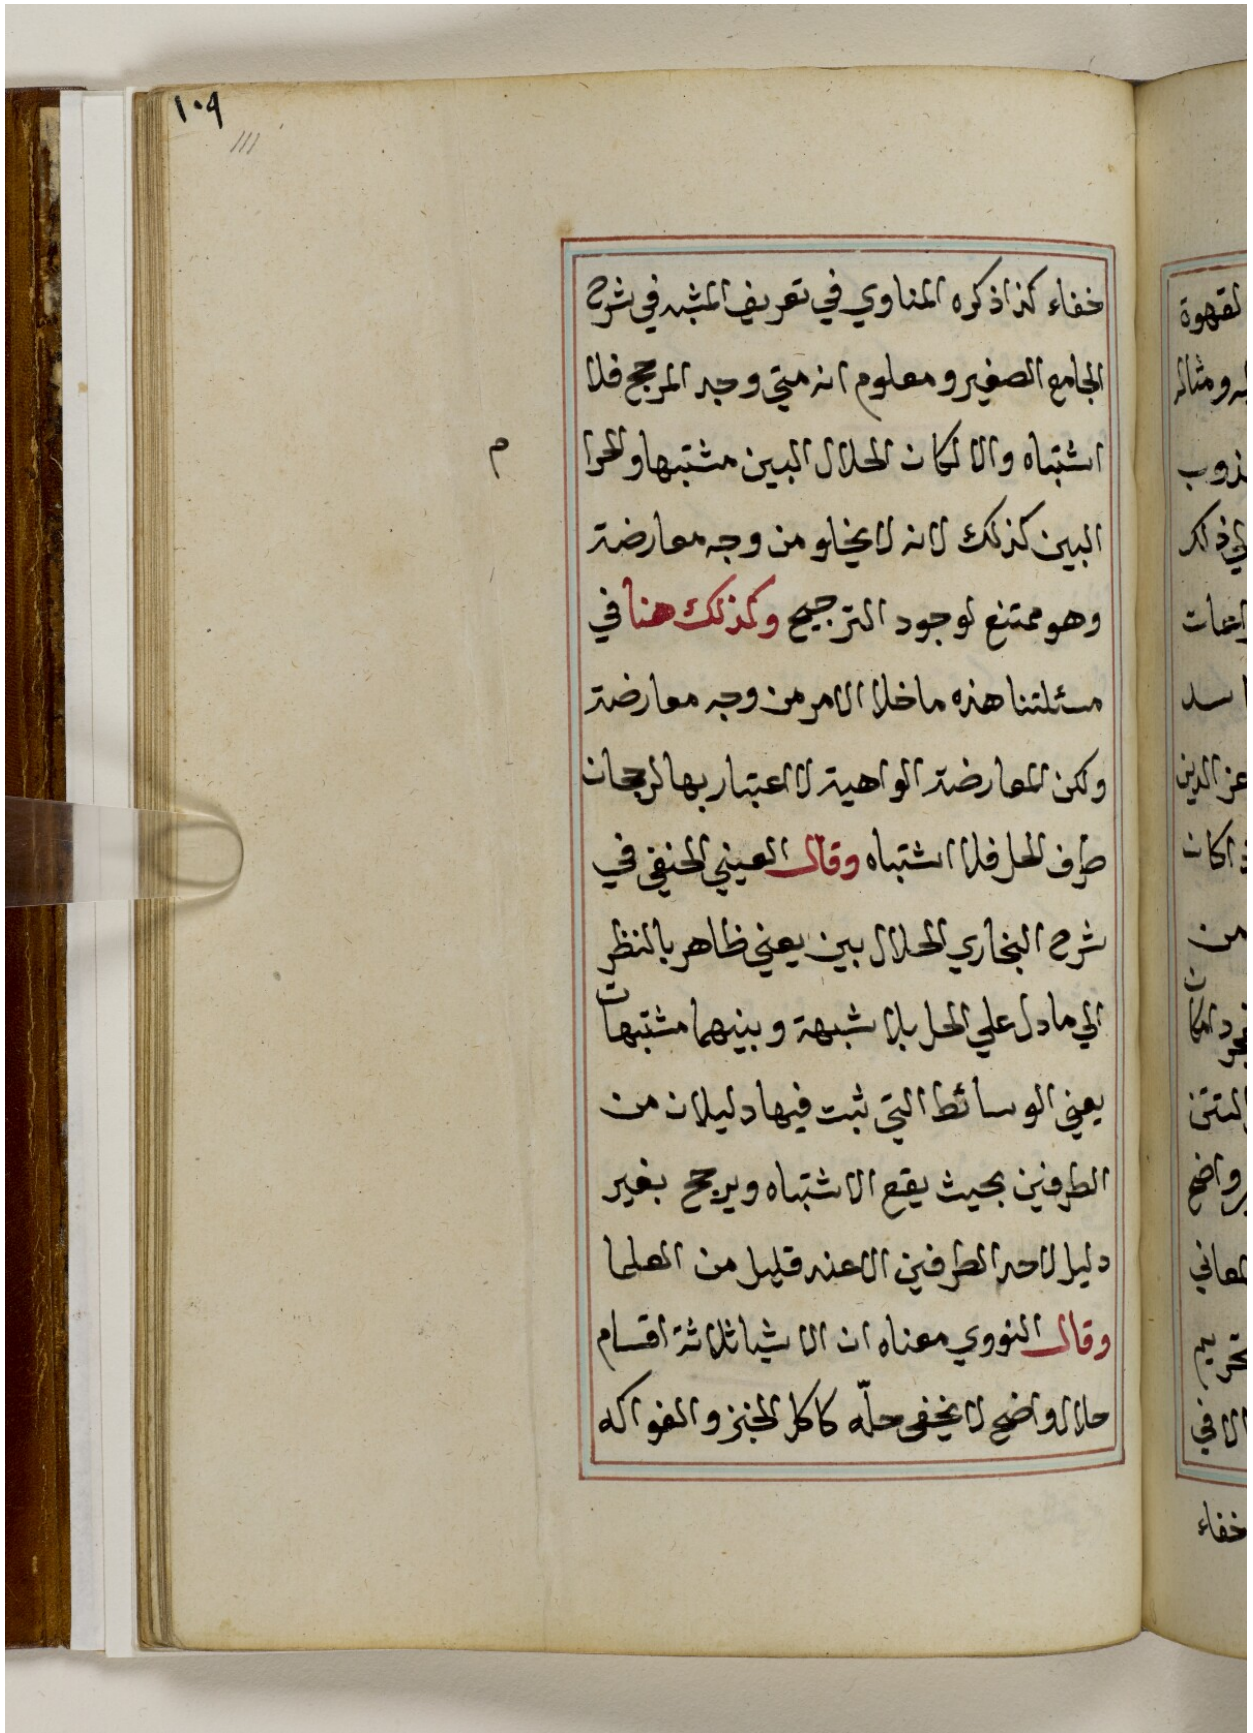 ١٠٩
111
خفاء كذا ذكره المناوي في تعريف المشبه في شرح
الجامع الصغير ومعلوم انه متي وجد المرجح فلا
اشتباه والا لكان الحلال البين مشتبها والحرا
م
البين كذلك لانه لا يخلو من وجه معارضة
وهو ممتنع لوجود الترجيح وكذلك هنا في
مسئلتنا هذه ما خلا الامر من وجه معارضة
ولكن المعارضة الواهية لا اعتبار بها لرجحان
طرف الحل فلا اشتباه وقال العيني الحنفي في
شرح البخاري الحلال بين يعني ظاهر بالنظر
الي ما دل علي الحل بلا شبهة وبينهما مشتبهات
يعني الوسائط التي ثبت فيها دليلان من
الطرفين بحيث يقع الاشتباه ويرجح بغير
دليل لاحد الطرفين الا عند قليل من العلما
وقال النووي معناه ان الاشيا ثلاثة اقسام
حلال واضح لا يخفى حلّه كاكل الخبز والفواكه
لقهوة
ومثاله
ذلك
اسد
عز الدين
من
واضح
الا في
خفاء